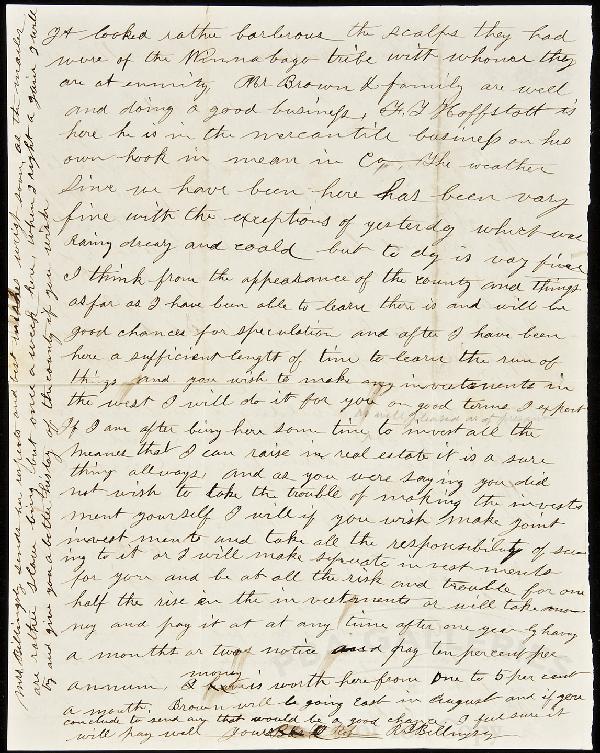 It looked rathe barberous the scalps they had
were of the Winnabago tribe with whome they
are at enmity, Mr Brown & family are well
and doing a good business, F. T. Hoffstott is
here he is in the mercantile business on his
own hook in mean in Co. The weather
Sinc we have been here has been vary
fine with the exceptions of yesterdy which was
Rainy dreary and coald but to dy is vay fine
I think from the appeasance of the county and things
as far as I have been able to learn there is and will be
good chances for speculation and after I have been
here a sufficient length of time to learn the run of
things and you wish to make any investments in
the west I will do it for you on good terms I expect
as well pleased as at first
If I am after being here some time to invest all the
means that I can raise in real estate it is a sure
thing allways, and as you were saying you did
not wish to take the trouble of making the invests
ment yourself I will if you wish make joint
invest ments and take all the responsibility of see
ing to it or I will make seperate invest ments
for you and be at all the risk and trouble for one
half the rise in the investments or will take mo
ney and pay it at at any time after one year by havy
a months or two notice and pay ten percent per
annum, money is worth here from one to 5 per cent
a month, Brown will be going east in August and if you
conclude to send any that would be a good chance, I feel sure it
will pay well Yours R Billingsy
Mrs Billingsly sends her respects and best wishes write soon as the mailes
are rathe slow being but once a week here, when I right a gain I will
try and give you a bother history of the county if you wish